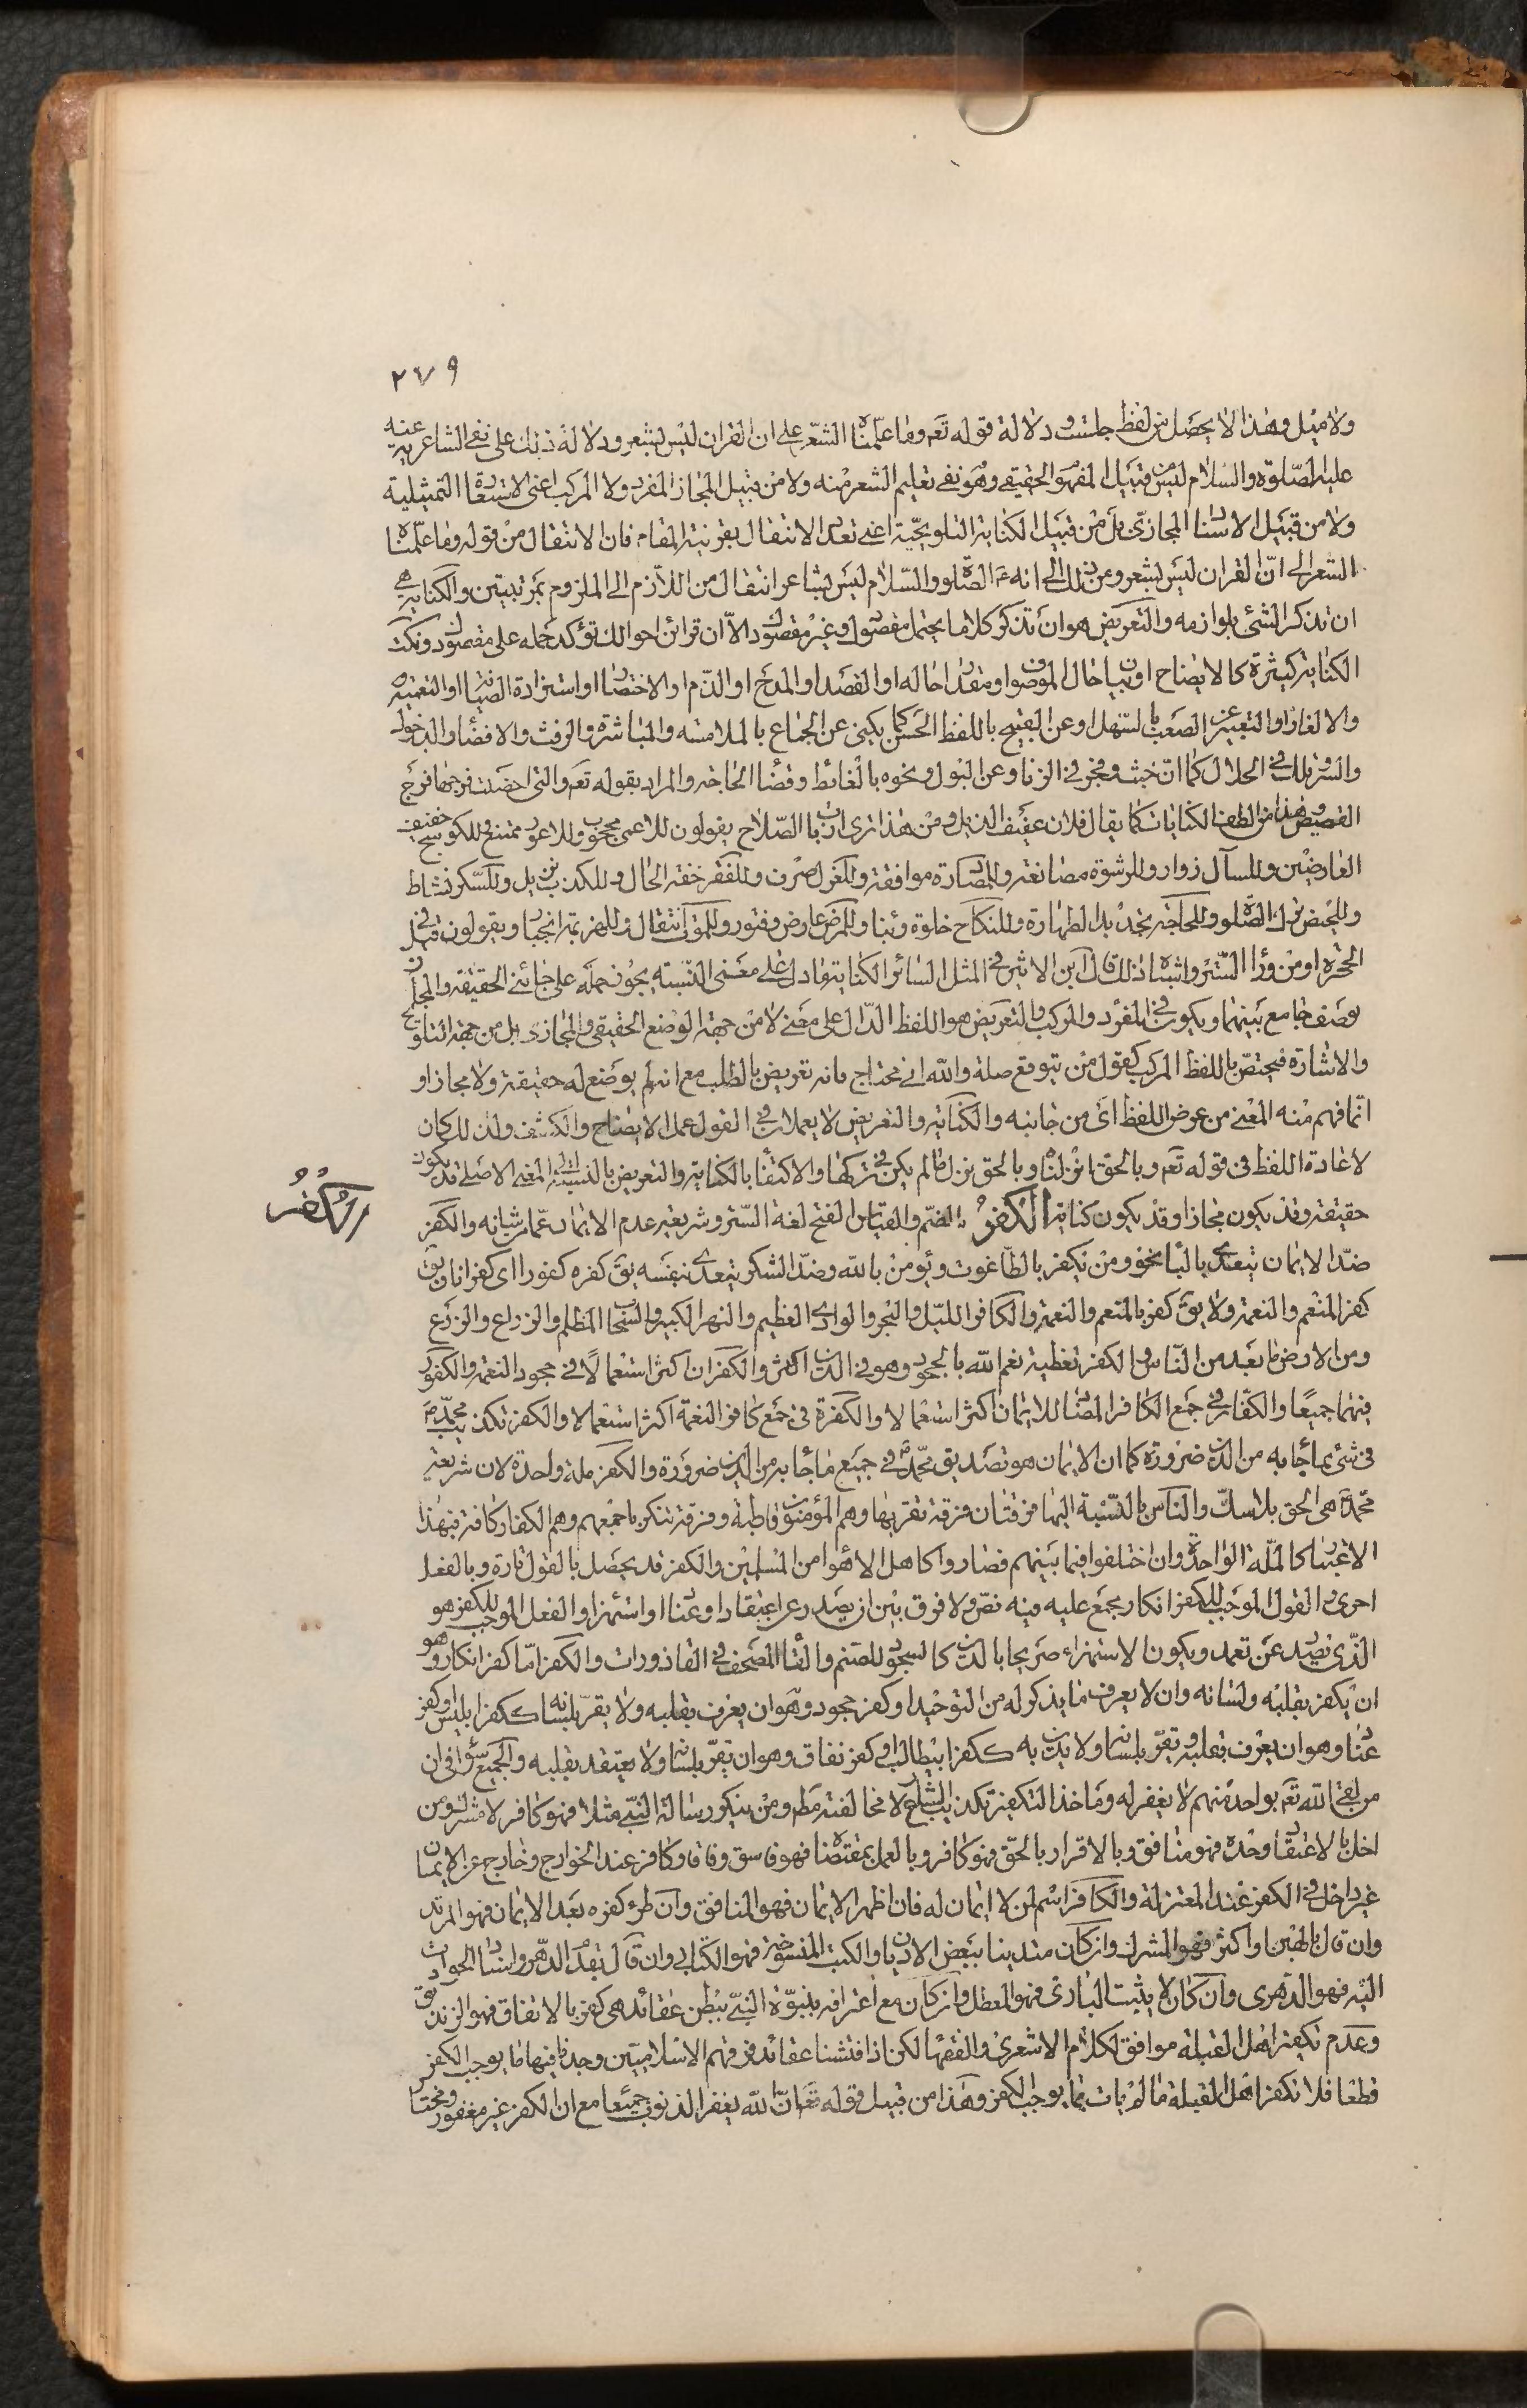 ٢٧٩
ولا ميل وهذا لا يحصل من لفظ جلست ودلالة قوله تعم وما علمناه الشعر على ان القران ليس بشعر ودلالة ذلك على نفى الشاعرية عنه
عليه الصلوة والسلام ليس من قبيل المفهوم الحقيقى وهو نفى تعليم الشعر منه ولا من قبيل المجاز المفرد ولا المركب اعنى الاستعارة التمثيلية
ولا من قبيل الاسناد المجازى بل من قبيل الكناية التلويحية اعنى تعدد الانتقال بقرينة المقام فان الانتقال من قوله وما علمناه
الشعر الى ان القران ليس بشعر ومن ذلك الى انه عم الصلوة والسلام ليس بشاعر انتقال من اللازم الى الملزوم بمرتبتين والكناية هى
ان تذكر الشئ بلوازمه والتعريض هو ان تذكر كلاما يحتمل مقصودك وغير مقصودك الا ان قرائن احوالك تؤكد حمله على مقصودك ونكت
الكناية كثيرة كالايضاح او بيان حال الموصوف او مقدار حاله او القصد او المدح او الذم او الاختصار او استزادة الصيانة او التعمية
والالغاز او التعبير عن الصعب بالسهل او عن القبيح باللفظ الحسن كما يكنى عن الجماع بالملامسة والمباشرة والرفث والافضاء والدخول
والسر وتلك فى الحلال كما ان خبث وفجر فى الزنا وعن البول ونحوه بالغائط وقضاء الحاجة والمراد بقوله تعم والتى احصنت فرجها فرج
القميص وهذا من الطف الكنايات كما يقال فلان عفيف الذيل ومن هذا ترى ارباب الصلاح يقولون للاعمى محجوب وللاعور ممتع وللكوسج خفيف
العارضين وللسآل زوار وللرشوة مصانعة وللمصادرة موافقة وللعزل صرف وللفقر خفة الحال وللكذب تزيل وللسكر نشاط
وللحيض ترك الصلوة وللحاجة تجديد الطهارة وللنكاح خلوة وبناء وللمرض عارض وفتور وللموت انتقال وللهزيمة انحياز ويقولون قيل فى
الحجرة او من وراء الستر واشباه ذلك قال ابن الاثير فى المثل السائر الكناية ما دل على معنى النسبة يجوز حمله على جانبى الحقيقة والمجاز
بوصف جامع بينهما ويكون فى المفرد والمركب والتعريض هو اللفظ الدال على معنى لا من جهة الوضع الحقيقى والمجازى بل من جهة التلويح
والاشارة فيختص باللفظ المركب كقول من يتوقع صلة والله انى محتاج فانه تعريض بالطلب مع انه لم يوضع له حقيقة ولا مجازا و
انما فهم منه المعنى من عرض اللفظ اى من جانبه والكناية والتعريض لا يعملان فى القول عمل الايضاح والكشف ولذلك كان
لاعادة اللفظ فى قوله تعم وبالحق انزلناه وبالحق نزل ما لم يكن فى تركها والاكتفاء بالكناية والتعريض بالنسبة الى المعنى الاصلى قد يكون
حقيقة وقد يكون مجازا وقد يكون كناية الكفر بالضم والقياس الفتح لغة الستر وشريعة عدم الايمان عما من شانه والكفر
الكفر
ضد الايمان يتعدى بالباء نحو ومن يكفر بالطاغوت ويؤمن بالله وضد الشكر يتعدى بنفسه يق كفره كفورا اى كفرانا ويق
كفر المنعم والنعمة ولا يق كفر بالمنعم والنعمة والكافر الليل والبحر والوادى العظيم والنهر الكبير والسحاب المظلم والزراع والزرع
ومن الارض ما بعد من الناس والكفر تغطية نعم الله بالجحود وهو فى الدين اكثر والكفران اكثر استعمالا فى جحود النعمة والكفور
فيهما جميعا والكفار فى جمع الكافر المضاد للايمان اكثر استعمالا والكفرة فى جمع كافر النعمة اكثر استعمالا والكفر تكذيب محمد صم
فى شئ مما جاء به من الدين ضرورة كما ان الايمان هو تصديق محمد صم فى جميع ما جاء به من الدين ضرورة والكفر ملة واحدة لان شريعة
محمد صم هى الحق بلا شك والناس بالنسبة اليها فرقتان فرقة تقر بها وهم المؤمنون قاطبة وفرقة تنكر باجمعهم وهم الكفار كافة فبهذا
الاعتبار كالملة الواحدة وان اختلفوا فيما بينهم فصاروا كاهل الاهواء من المسلمين والكفر قد يحصل بالقول تارة وبالفعل
اخرى والقول الموجب للكفر انكار مجمع عليه فيه نص ولا فرق بين ان يصدر عن اعتقاد او عناد او استهزاء والفعل الموجب للكفر هو
الذى يصدر عن تعمد ويكون الاستهزاء صريحا بالدين كالسجود للصنم والقاء المصحف فى القاذورات والكفر اما كفر انكار وهو
ان يكفر بقلبه ولسانه وان لا يعرف ما يذكر له من التوحيد او كفر جحود وهو ان يعرف بقلبه ولا يقر بلسانه ككفر ابليس او كفر
عناد وهو ان يعرف بقلبه ويقر بلسانه ولا يدين به ككفر ابيطالب او كفر نفاق وهو ان يقر بلسانه ولا يعتقد بقلبه والجميع سواء فى ان
من لقى الله تعم بواحد منهم لا يغفر له وماخذ التكفير تكذيب الشارع لا مخالفته مطم ومن ينكر رسالة النبى مثلا فهو كافر لا مشرك ومن
اخل بالاعتقاد وحده فهو منافق وبالاقرار بالحق فهو كافر وبالعمل بمقتضاه فهو فاسق وفاقا وكافر عند الخوارج وخارج عن الايمان
غير داخل فى الكفر عند المعتزلة والكافر اسم لمن لا ايمان له فان اظهر الايمان فهو المنافق وان طرء كفره بعد الايمان فهو المرتد
وان قال بالهين او اكثر فهو المشرك وان كان متدينا ببعض الاديان والكتب المنسوخة فهو الكتابى وان قال بقدم الدهر واسناد الحوادث
اليه فهو الدهرى وان كان لا يثبت البارى فهو المعطل وان كان مع اعترافه بنبوة النبى يبطن عقائد هى كفر بالاتفاق فهو الزنديق
وعدم تكفير اهل القبلة موافق لكلام الاشعرى والفقهاء لكن اذا فتشنا عقائد فرقهم الاسلاميين وجدنا فيها ما يوجب الكفر
قطعا فلا نكفر اهل القبلة ما لم يات بما يوجب الكفر وهذا من قبيل قوله تعم ان الله يغفر الذنوب جميعا مع ان الكفر غير مغفور ومختار